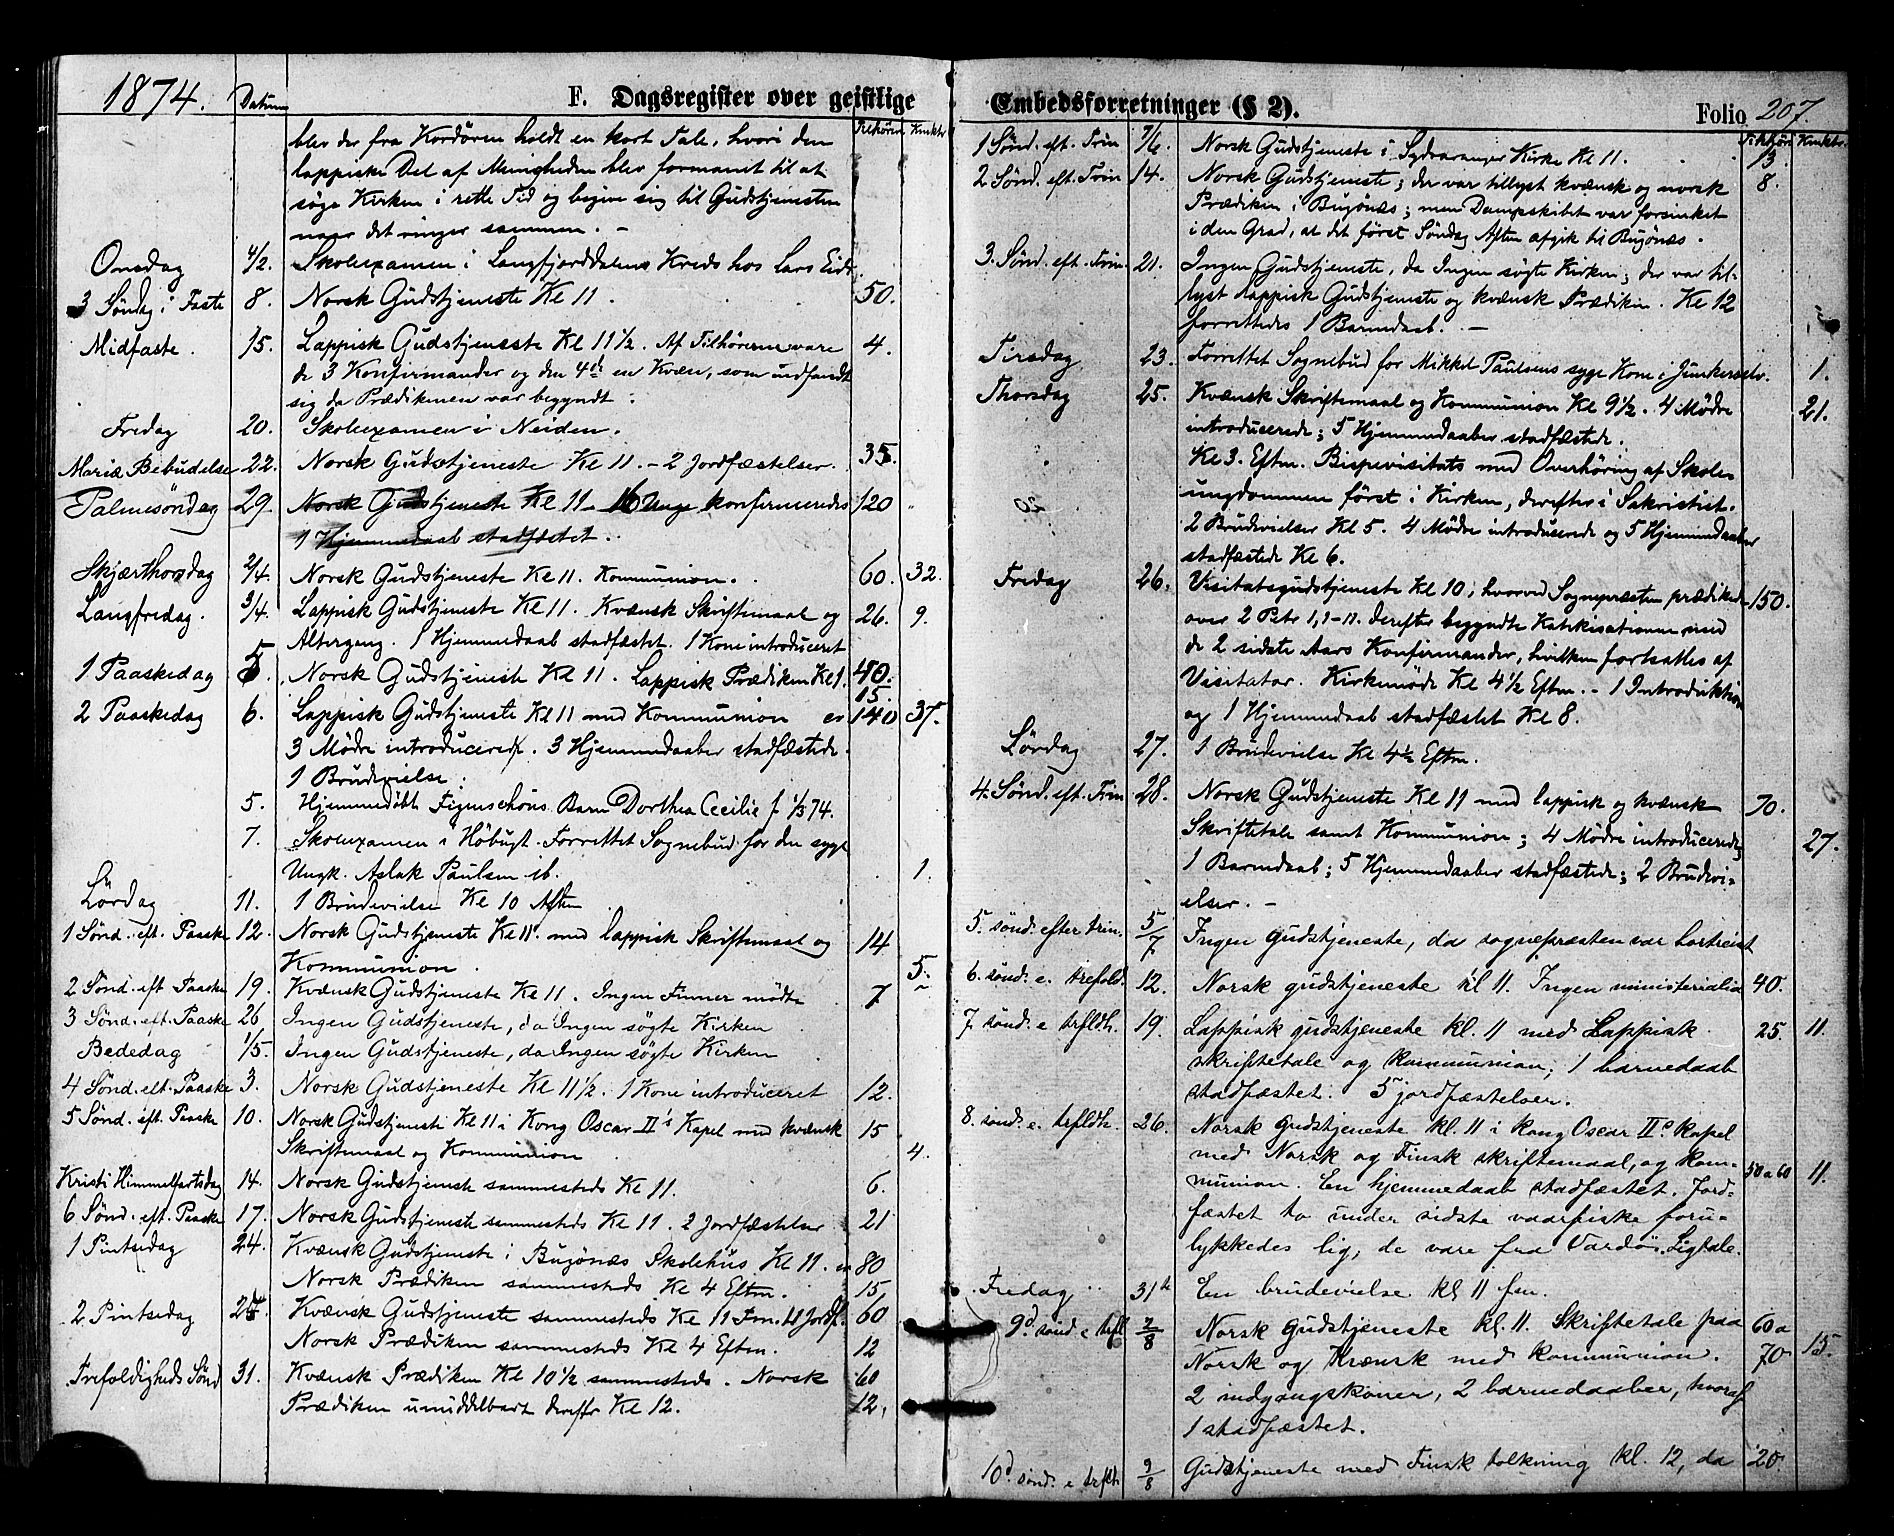 1874. Datum F. Dagsregister over geistlige
Tilhörer Kmktr
blev der fra Kordören holdt en kort Tale, hvori den
lappiske Del af Menigheden blev formanet til at
søge Kirken i rette Tid og begive sig til Gudstjenesten
naar det ringer sammen. -
Onsdag 4/2. Skoleexamen i Langfjorddalens Kreds hos Lars
3 Søndag i Faste 8. Norsk Gudstjeneste Kl 11. 50.
Midfaste. 15. Lappisk Gudstjeneste Kl 11½. Af Tilhørerne vare 4.
de 3 Konfirmander og den 4de en Kvæn, som indfandt
sig da Prædikenen var begyndt.
Fredag 20. Skoleexamen i Neiden.
Mariæ Bebudelse 22. Norsk Gudstjeneste Kl 11. - 2 Jordfæstelser. 35.
Palmesöndag 29. Norsk Gudstjeneste Kl 11 - 16 Unge konfirmeredes 120
1 Hjemmedaab stadfæstet.
Skjærthorsdag 2/4. Norsk Gudstjeneste Kl 11. Kommunion. 60. 32.
Langfredag. 3/4. Lappisk Gudstjeneste Kl 11. Kvænsk Skriftemaal og 26. 9.
Altergang. 1 Hjemmedaab stadfæstet. 1 Kone introduceret
1 Paaskedag 5. Norsk Gudstjeneste Kl 11. Lappisk Prædiken Kl 1. 40.
15.
2 Paaskedag 6. Lappisk Gudstjeneste Kl 11 med Kommunion ca 140 37.
3 Mødre introducerede. 3 Hjemmedaaber stadfæstede.
1 Brudevielse.
5. Hjemmedöbt Figenschous Barn Dorthea Cecilie f. 1/3 74.
7. Skoleexamen i Höbugt. Forrettet Sognebud for den syge
Ungk. Aslak Paulsen ib. 1.
Lördag 11. 1 Brudevielse Kl 10 Aften
1 Sønd. eft. Paaske 12. Norsk Gudstjeneste Kl 11. med lappisk Skriftemaal og 14
Kommunion. 5.
2 Sønd. eft. Paaske 19. Kvænsk Gudstjeneste Kl 11. Ingen Finner mødte 7
3 Sønd. eft. Paaske 26 Ingen Gudstjeneste, da Ingen søgte Kirken
Bededag 1/5. Ingen Gudstjeneste, da Ingen søgte Kirken
4 Sønd. eft. Paaske 3. Norsk Gudstjeneste Kl 11½. 1 Kone introduceret 12.
5 Sønd. eft. Paaske 10. Norsk Gudstjeneste Kl 11 i Kong Oscar II's Kapel med kvænsk 15
Skriftemaal og Kommunion 4.
Kristi Himmelfartsdag 14. Norsk Gudstjeneste sammesteds Kl 11. 6.
6 Sønd. eft. Paaske 17. Norsk Gudstjeneste sammesteds Kl 11. 2 Jordfæstelser 21
1 Pintsedag 24. Kvænsk Gudstjeneste i Bugönæs Skolehus Kl 11. ca 80
Norsk Prædiken sammesteds Kl 4 Eftm. 15
2 Pintsedag Kvænsk Gudstjeneste sammesteds Kl 11 Fm. Jordf. 60
Norsk Prædiken sammesteds Kl 4 Eftm. 12
Trefoldigheds Sønd 31. Kvænsk Prædiken Kl 10½ sammesteds. Norsk 60
Prædiken umiddelbart derefter Kl 12. 12.
Embedsforretninger (§ 2). Folio 207.
Tilhör. Kmktr.
1 Sønd. eft. Trin 7/6. Norsk Gudstjeneste i Sydvaranger Kirke Kl 11. 13
2 Sønd. eft. Trin 14. Norsk Gudstjeneste; der var tillyst kvænsk og norsk 8.
Prædiken i Bugönæs; men Dampskibet var forsinket
i den Grad, at det først Søndag Aften afgik til Bugönæs.
3. Sønd. eft. Trin. 21. Ingen Gudstjeneste, da Ingen søgte Kirken; der var til-
lyst lappisk Gudstjeneste og kvænsk Prædiken. Kl 12
forrettedes 1 Barnedaab. -
Tirsdag 23. Forrettet Sognebud for Mikkel Paulsens syge Kone i Junkerselv. 1.
Thorsdag 25. Kvænsk Skriftemaal og Kommunion Kl 9½. 4 Mødre 21.
introducerede; 5 Hjemmedaaber stadfæstede.
Kl 3. Eftm. Bispevisitats med Overhöring af Skole-
ungdommen først i Kirken, derefter i Sakristiet.
2 Brudevielser Kl 5. 4 Mødre introducerede og 5 Hjemmedaaber
stadfæstede Kl 6.
Fredag 26. Visitatsgudstjeneste Kl 10, hvorved Sognepræsten prædikede 150.
over 2 Petr 1, 1-11. derefter begyndte Katekisationen med
de 2 sidste Aars Konfirmander, hvilken fortsattes af
Visitator. Kirkemøde Kl 4½ Eftm. - 1 Introduktion
og 1 Hjemmedaab stadfæstet Kl 8.
Lördag 27. 1 Brudevielse Kl 4½ Eftm.
4. Sønd. eft. Trin 28. Norsk Gudstjeneste Kl 11 med lappisk og kvænsk 70.
Skriftetale samt Kommunion; 4 Mødre introducerede; 27.
1 Barnedaab; 5 Hjemmedaaber stadfæstede; 2 Brudevi-
elser. -
5. sönd. efter trin. 5/7 Ingen gudstjeneste, da sognepræsten var bortreist
6. sönd. e. trefold. 12. Norsk gudstjeneste kl 11. Ingen ministerialia 40.
7. sönd. e trfldh. 19. Lappisk gudstjeneste kl. 11 med Lappisk 25. 11.
skriftetale og kommunion; 1 barnedaab
stadfæstet. 5 jordfæstelser.
8. sönd. e. trfldh. 26. Norsk gudstjeneste kl. 11 i kong Oscar IIs kapel
med Norsk og Finsk skriftemaal, og kom-
munion. En hjemmedaab stadfæstet. Jord- 50 a 60 11.
fæstet to under sidste vaarfiske foru-
lykkedes lig, de vare fra Vardö. Ligtale.
Fredag 31te En brudevielse kl 11 fm.
9d. sönd e trfl 2/8 Norsk gudstjeneste kl. 11. Skriftetale paa 60 a
Norsk og Kvænsk med kommunion. 70 15.
2 indgangskoner, 2 barnedaaber, hvoraf
1 stadfæstet.
10d. sönd. e trflt. 9/8 Gudstjeneste med Finsk tolkning kl. 12, da 20